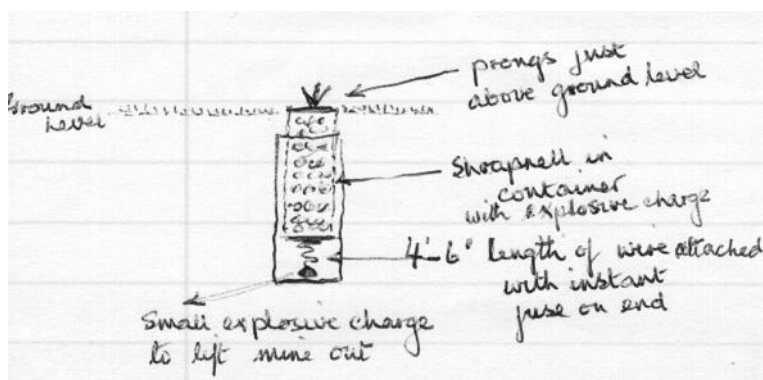 prongs just
above ground level
Ground
level
Shrapnell in
container
with explosive charge
4'-6" length of wire attached
with instant
fuse on end
Small explosive charge
to lift mine out